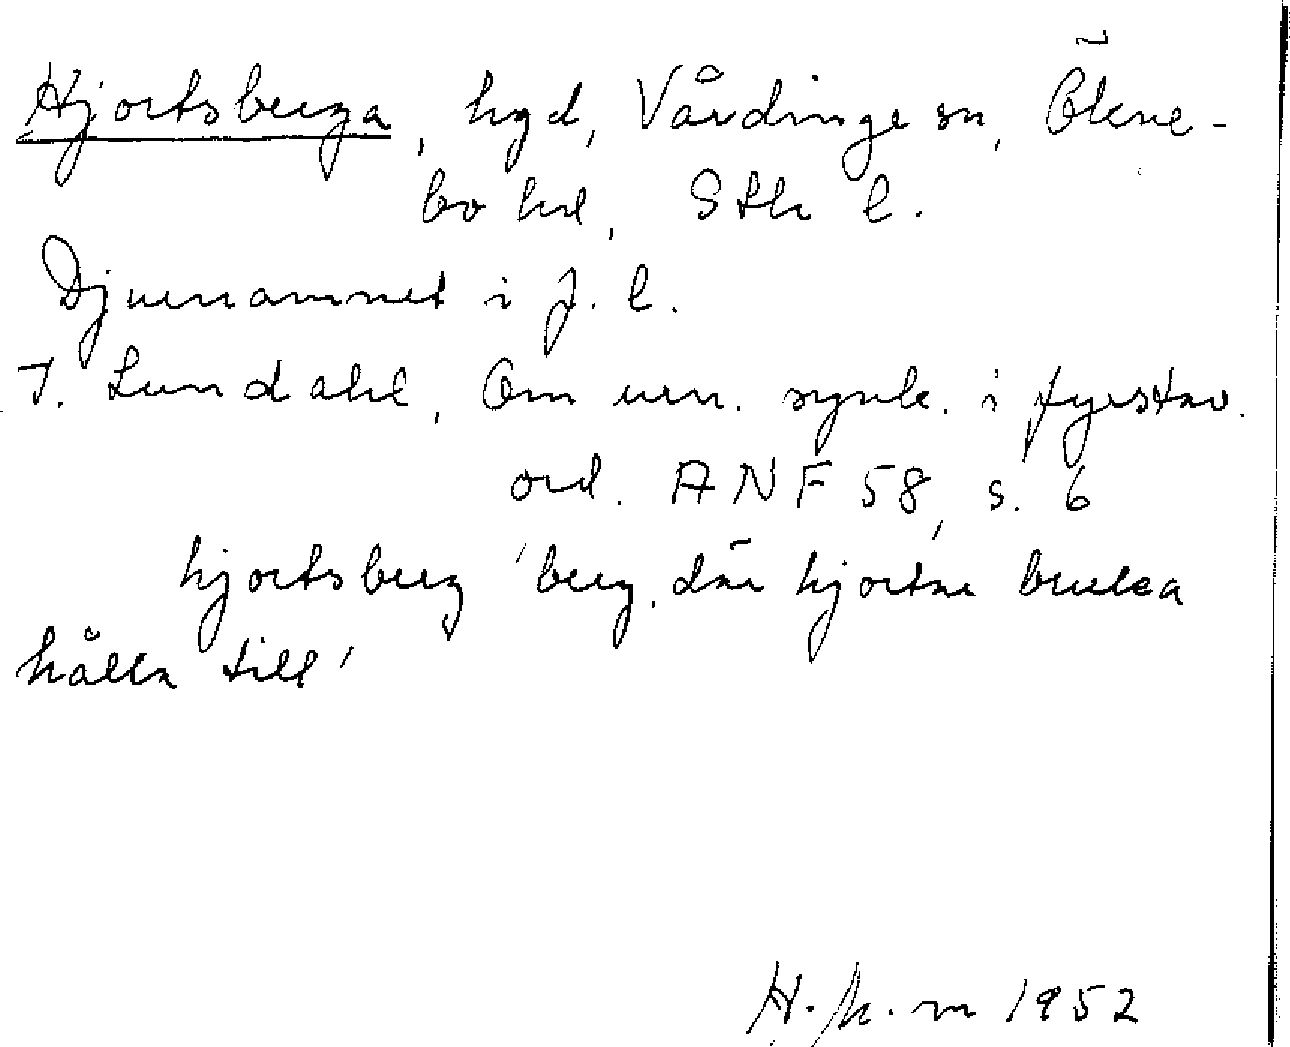 Hjortsberga, hgd, Vårdinge sn, Ökne-
bo hd, Sth l.
Djurnamnet i f. l.
I. Lundahl, Om urn. synk. i fyrstav.
ord. ANF 58, s. 6
hjortsberg 'berg, där hjortar bruka
hålla till'
1952